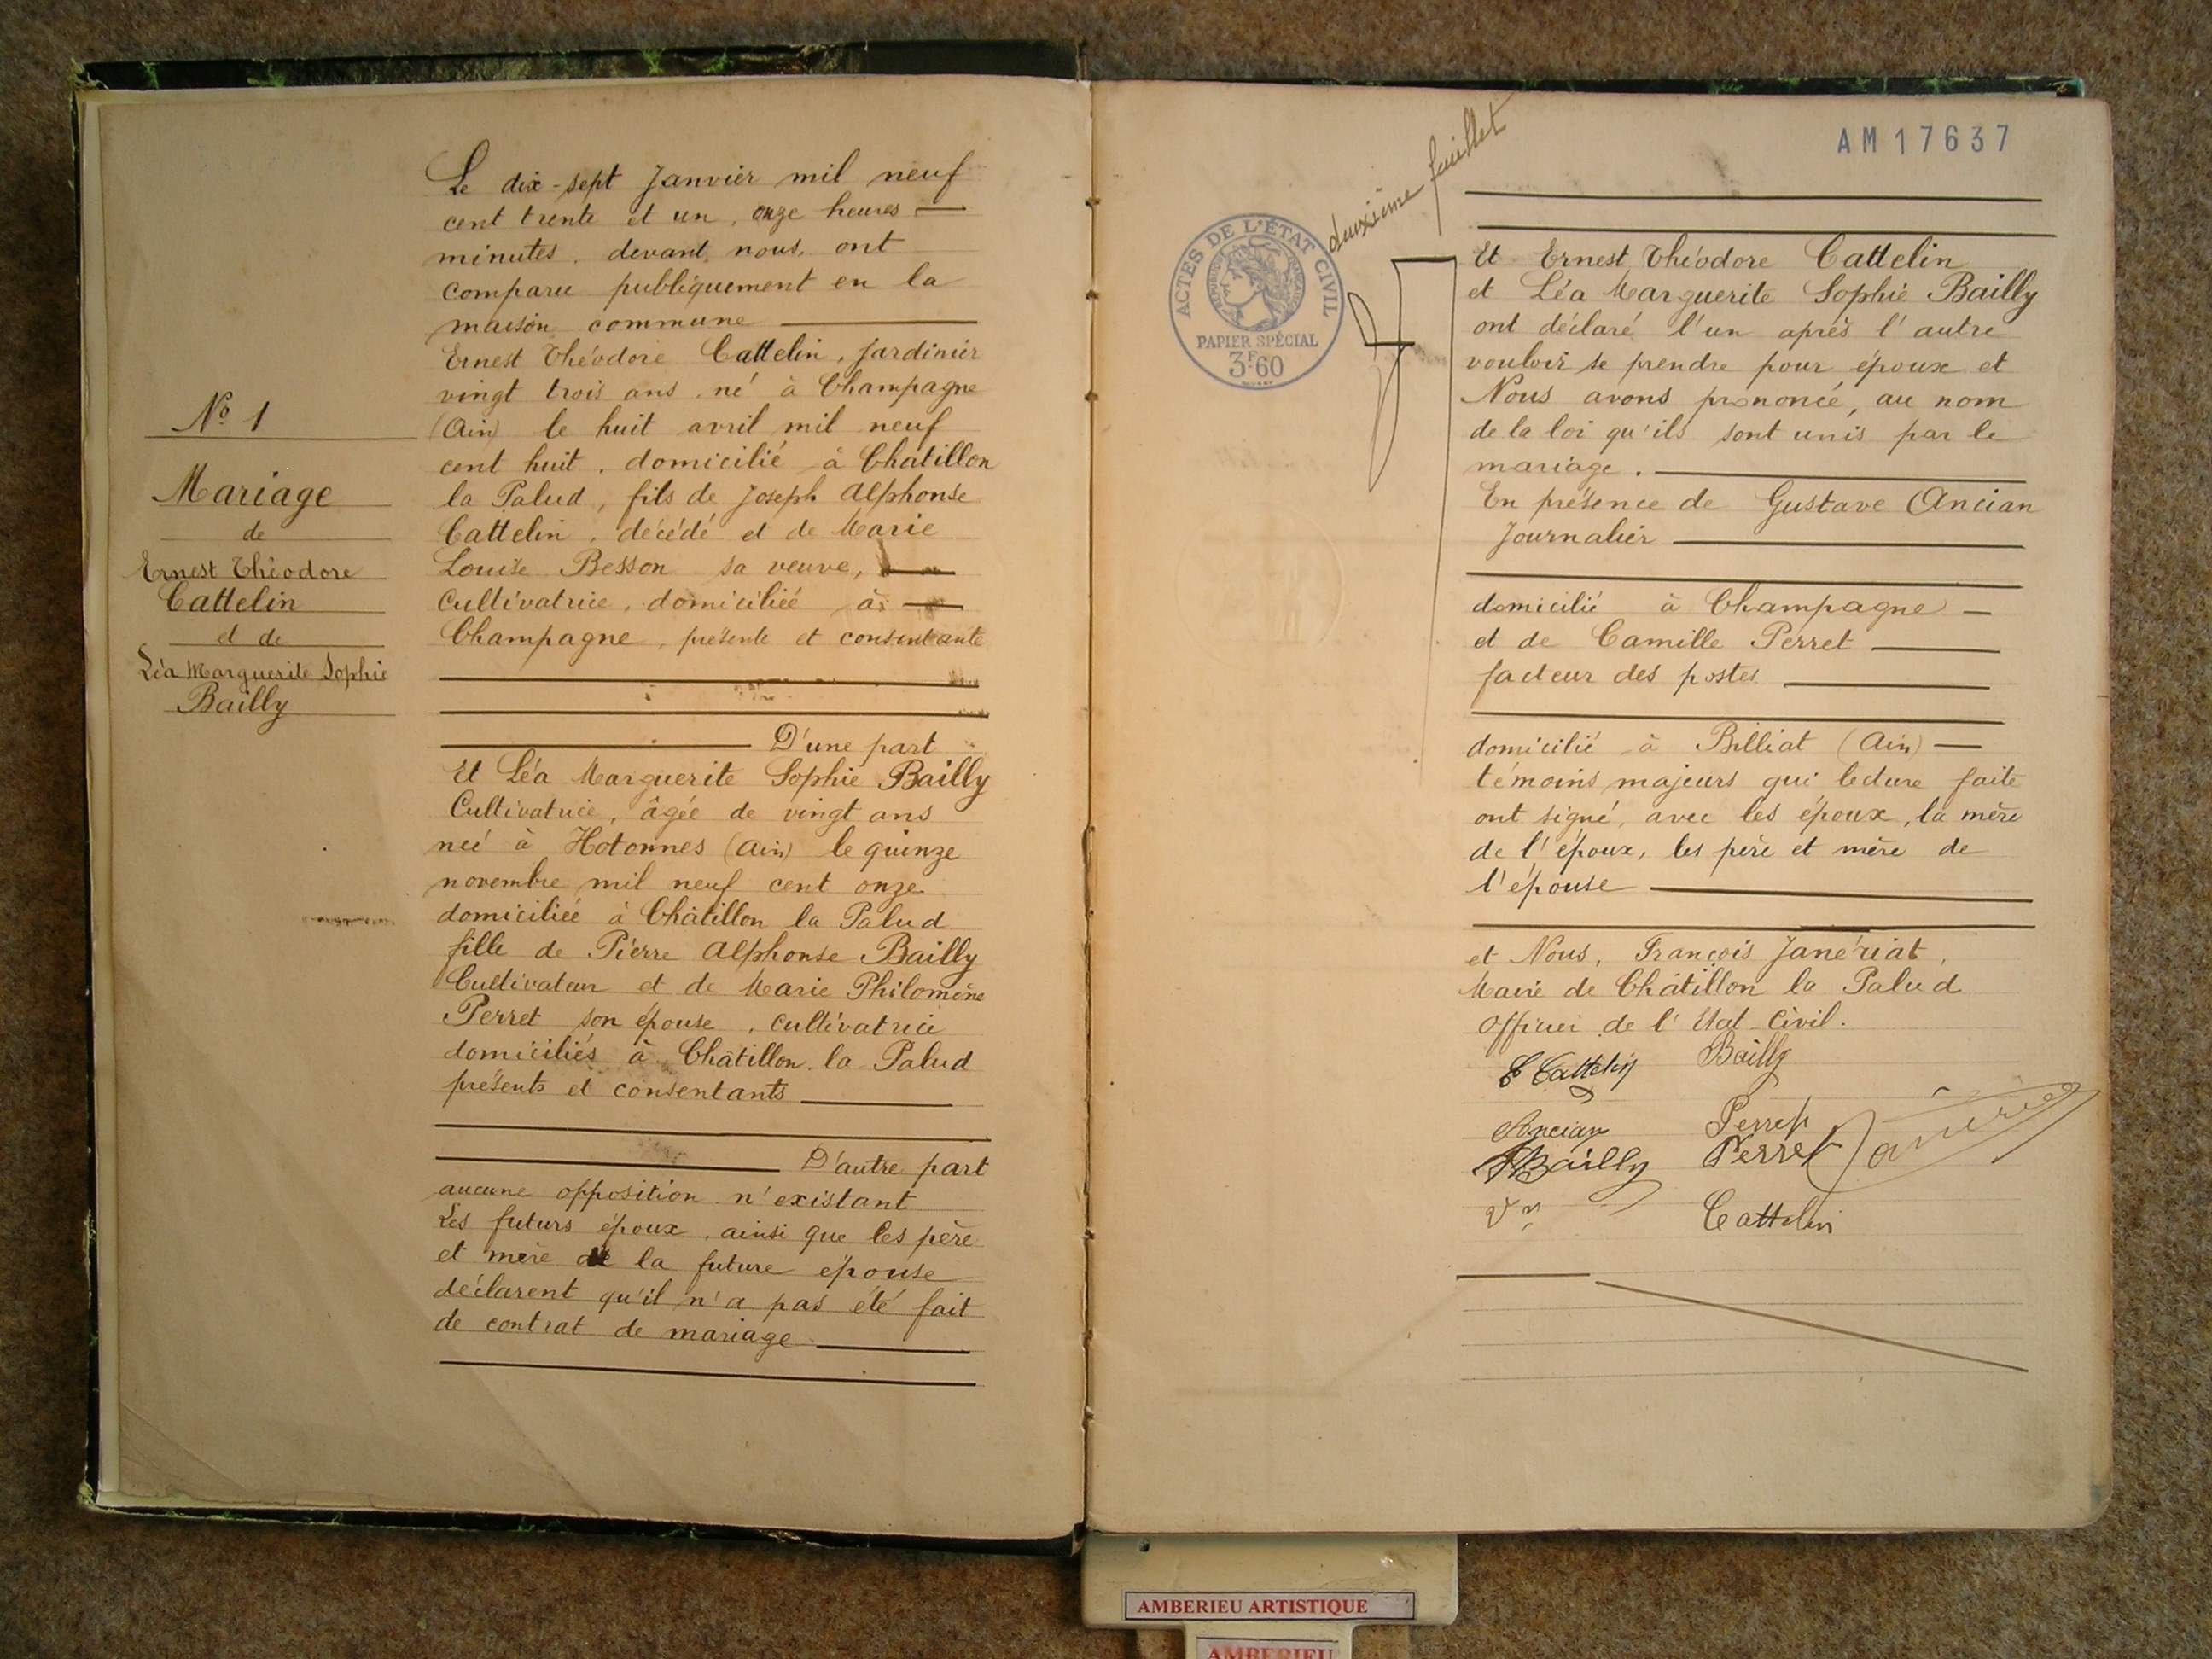 Le dix-sept Janvier mil neuf
cent trente et un, onze heures
minutes, devant nous, ont
comparu publiquement en la
maison commune
Ernest Théodore Cattelin, Jardinier
vingt trois ans, né à Champagne
(Ain) le huit avril mil neuf
cent huit, domicilié à Châtillon
la Palud, fils de Joseph Alphonse
Cattelin, décédé et de Marie
Louise Besson sa veuve,
Cultivatrice, domiciliée à
Champagne, présente et consentante
D'une part
Et Léa Marguerite Sophie Bailly
Cultivatrice, âgée de vingt ans
née à Hotonnes (Ain) le quinze
novembre mil neuf cent onze
domiciliée à Châtillon la Palud
fille de Pierre Alphonse Bailly
Cultivateur et de Marie Philomène
Perret son épouse, cultivatrice
domiciliés à Châtillon la Palud
présents et consentants
D'autre part
aucune opposition n'existant
Les futurs époux, ainsi que les père
et mère de la future épouse
déclarent qu'il n'a pas été fait
de contrat de mariage
No 1
Mariage
de
Ernest Théodore
Cattelin
et de
Léa Marguerite Sophie
Bailly
AM17637
deuxième feuillet
ACTES DE L'ÉTAT CIVIL
RÉPUBLIQUE FRANÇAISE
PAPIER SPÉCIAL
3F.60
Et Ernest Théodore Cattelin
et Léa Marguerite Sophie Bailly
ont déclaré l'un après l'autre
vouloir se prendre pour époux et
Nous avons prononcé, au nom
de la loi qu'ils sont unis par le
mariage.
En présence de Gustave Ancian
Journalier
domicilié à Champagne
et de Camille Perret
facteur des postes
domicilié à Billiat (Ain)
témoins majeurs qui lecture faite
ont signé, avec les époux, la mère
de l'époux, les père et mère de
l'épouse
et Nous, François Janériat,
Maire de Châtillon la Palud
Officier de l'Etat Civil.
E Cattelin Bailly
Ancian Perret
Bailly Perret Janériat
Vve Cattelin
AMBERIEU ARTISTIQUE
AMBERIEU